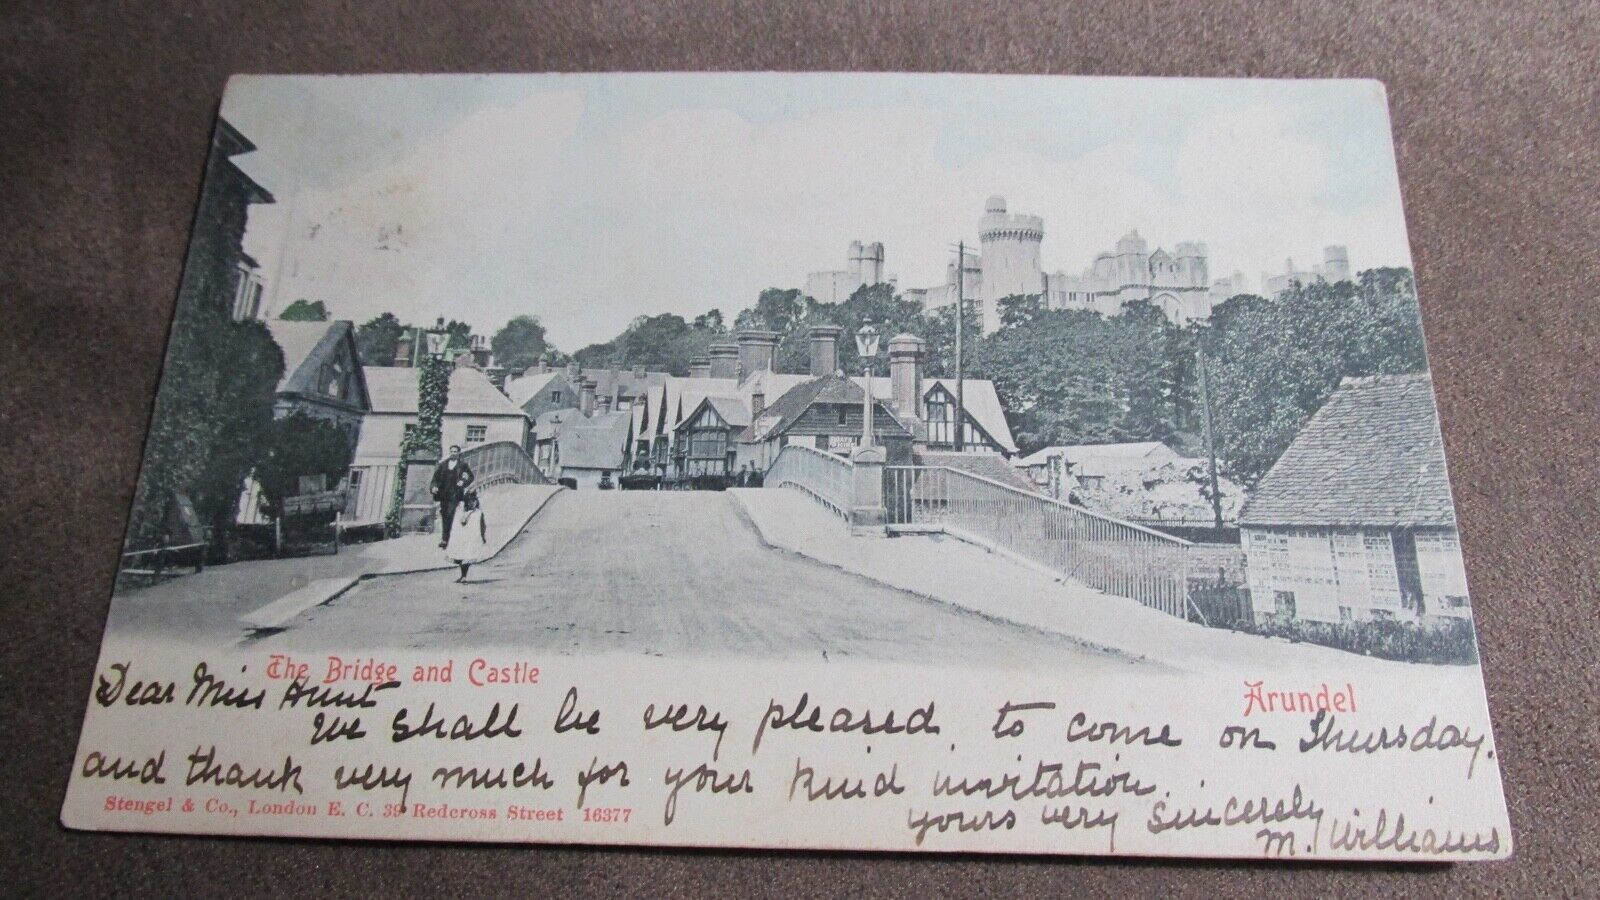 The Bridge and Castle
Arundel
Dear Miss Hunt
We shall be very pleased to come on Thursday.
and thank very much for your kind invitation.
Stengel & Co., London E. C. 39 Redcross Street 16377
yours very sincerely
M. Williams